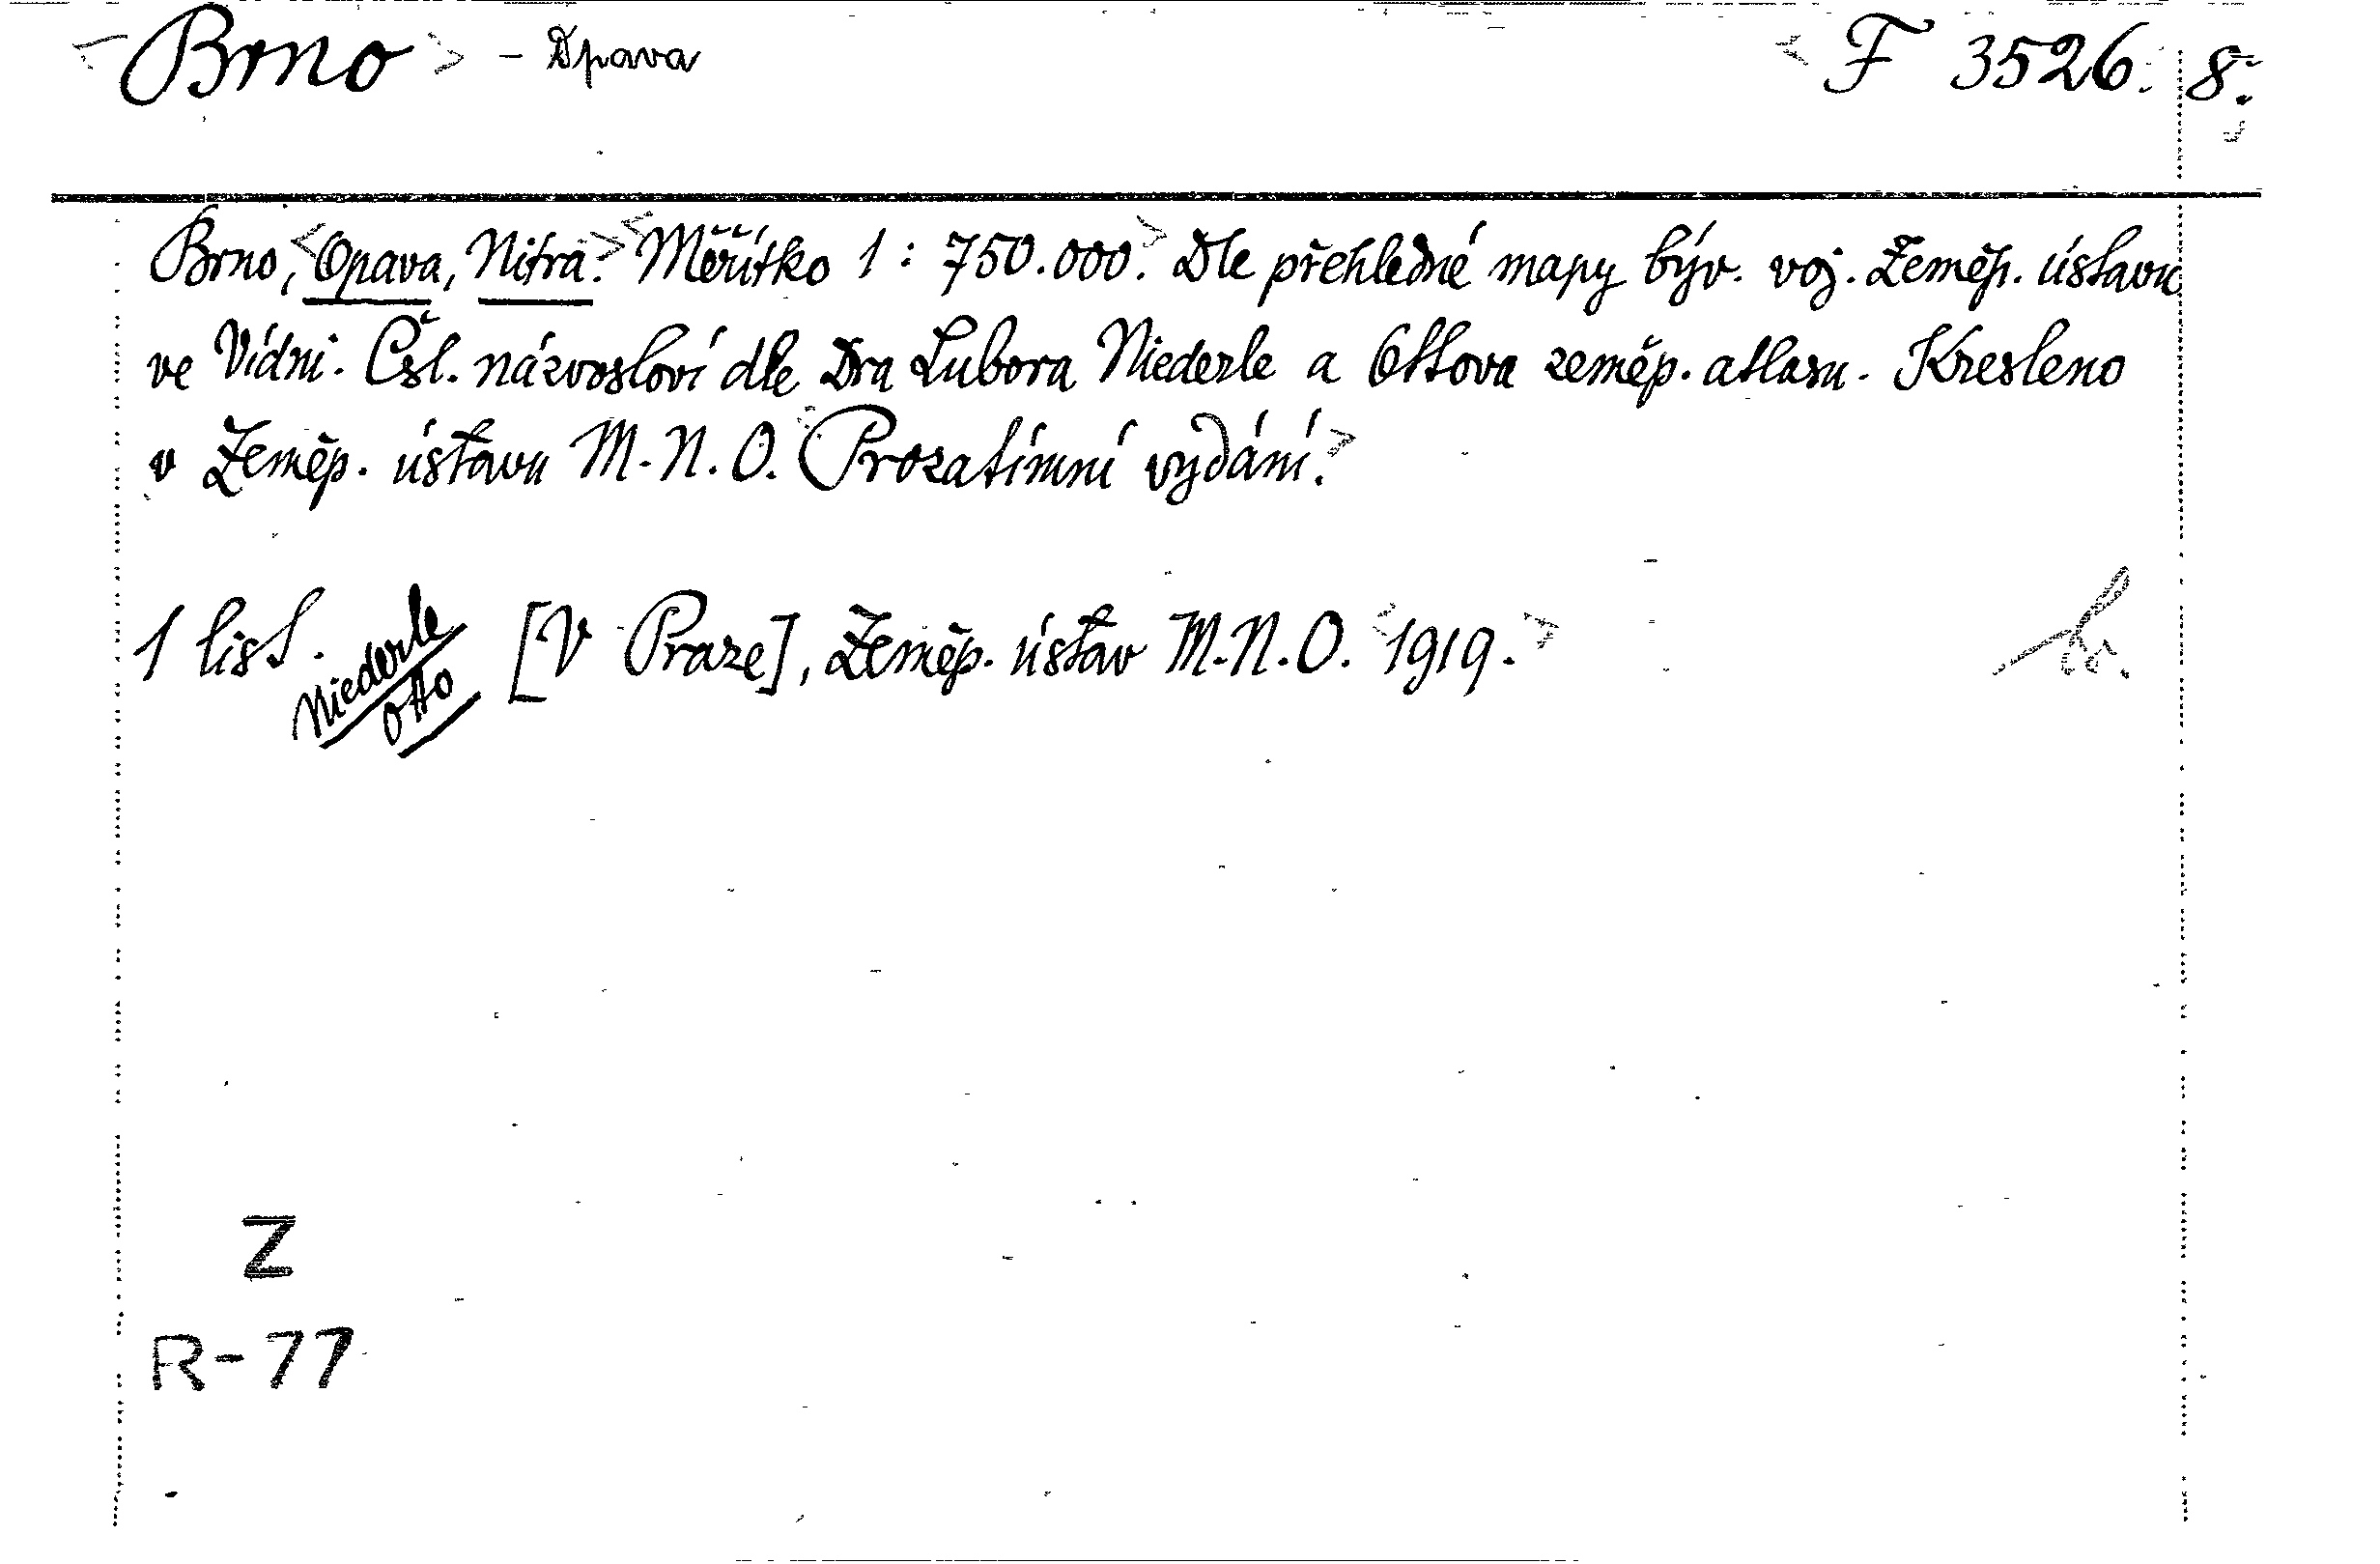 <Brno> - Opava <F 3526. 8.
Brno, <Opava, Nitra.> <Měřítko 1 : 750.000.> Dle přehledné mapy býv. voj. Zeměp. ústavu
ve Vídni. Čsl. názvosloví dle Dra Lubora Niederle a Ottova zeměp. atlasu. Kresleno
v Zeměp. ústavu M.N.O. Prozatímní vydání.>
1 list. [V Praze], Zeměp. ústav M.N.O. <1919.>
Niederle
Otto
Z
R-77